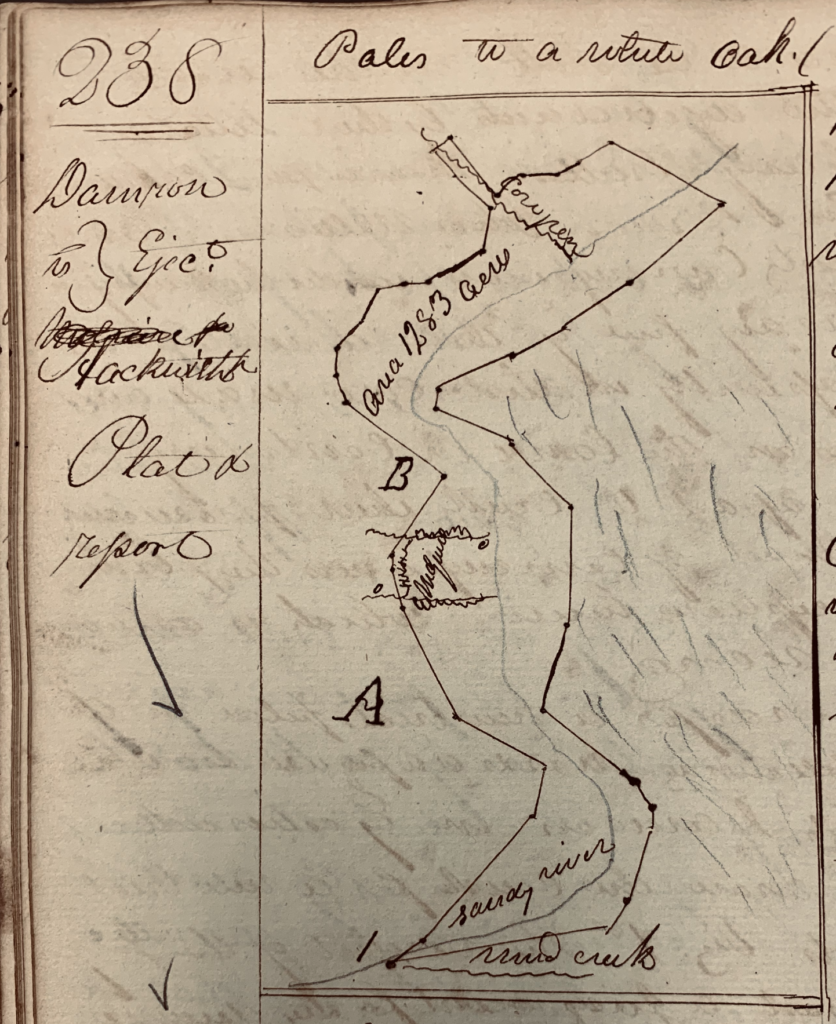 238
Poles to a white oak.
Damron
vs } Ejec.t
Hackwith
Plat &
report
Cow pen
area 1283 acres
B
A
sandy river
1
mud creek